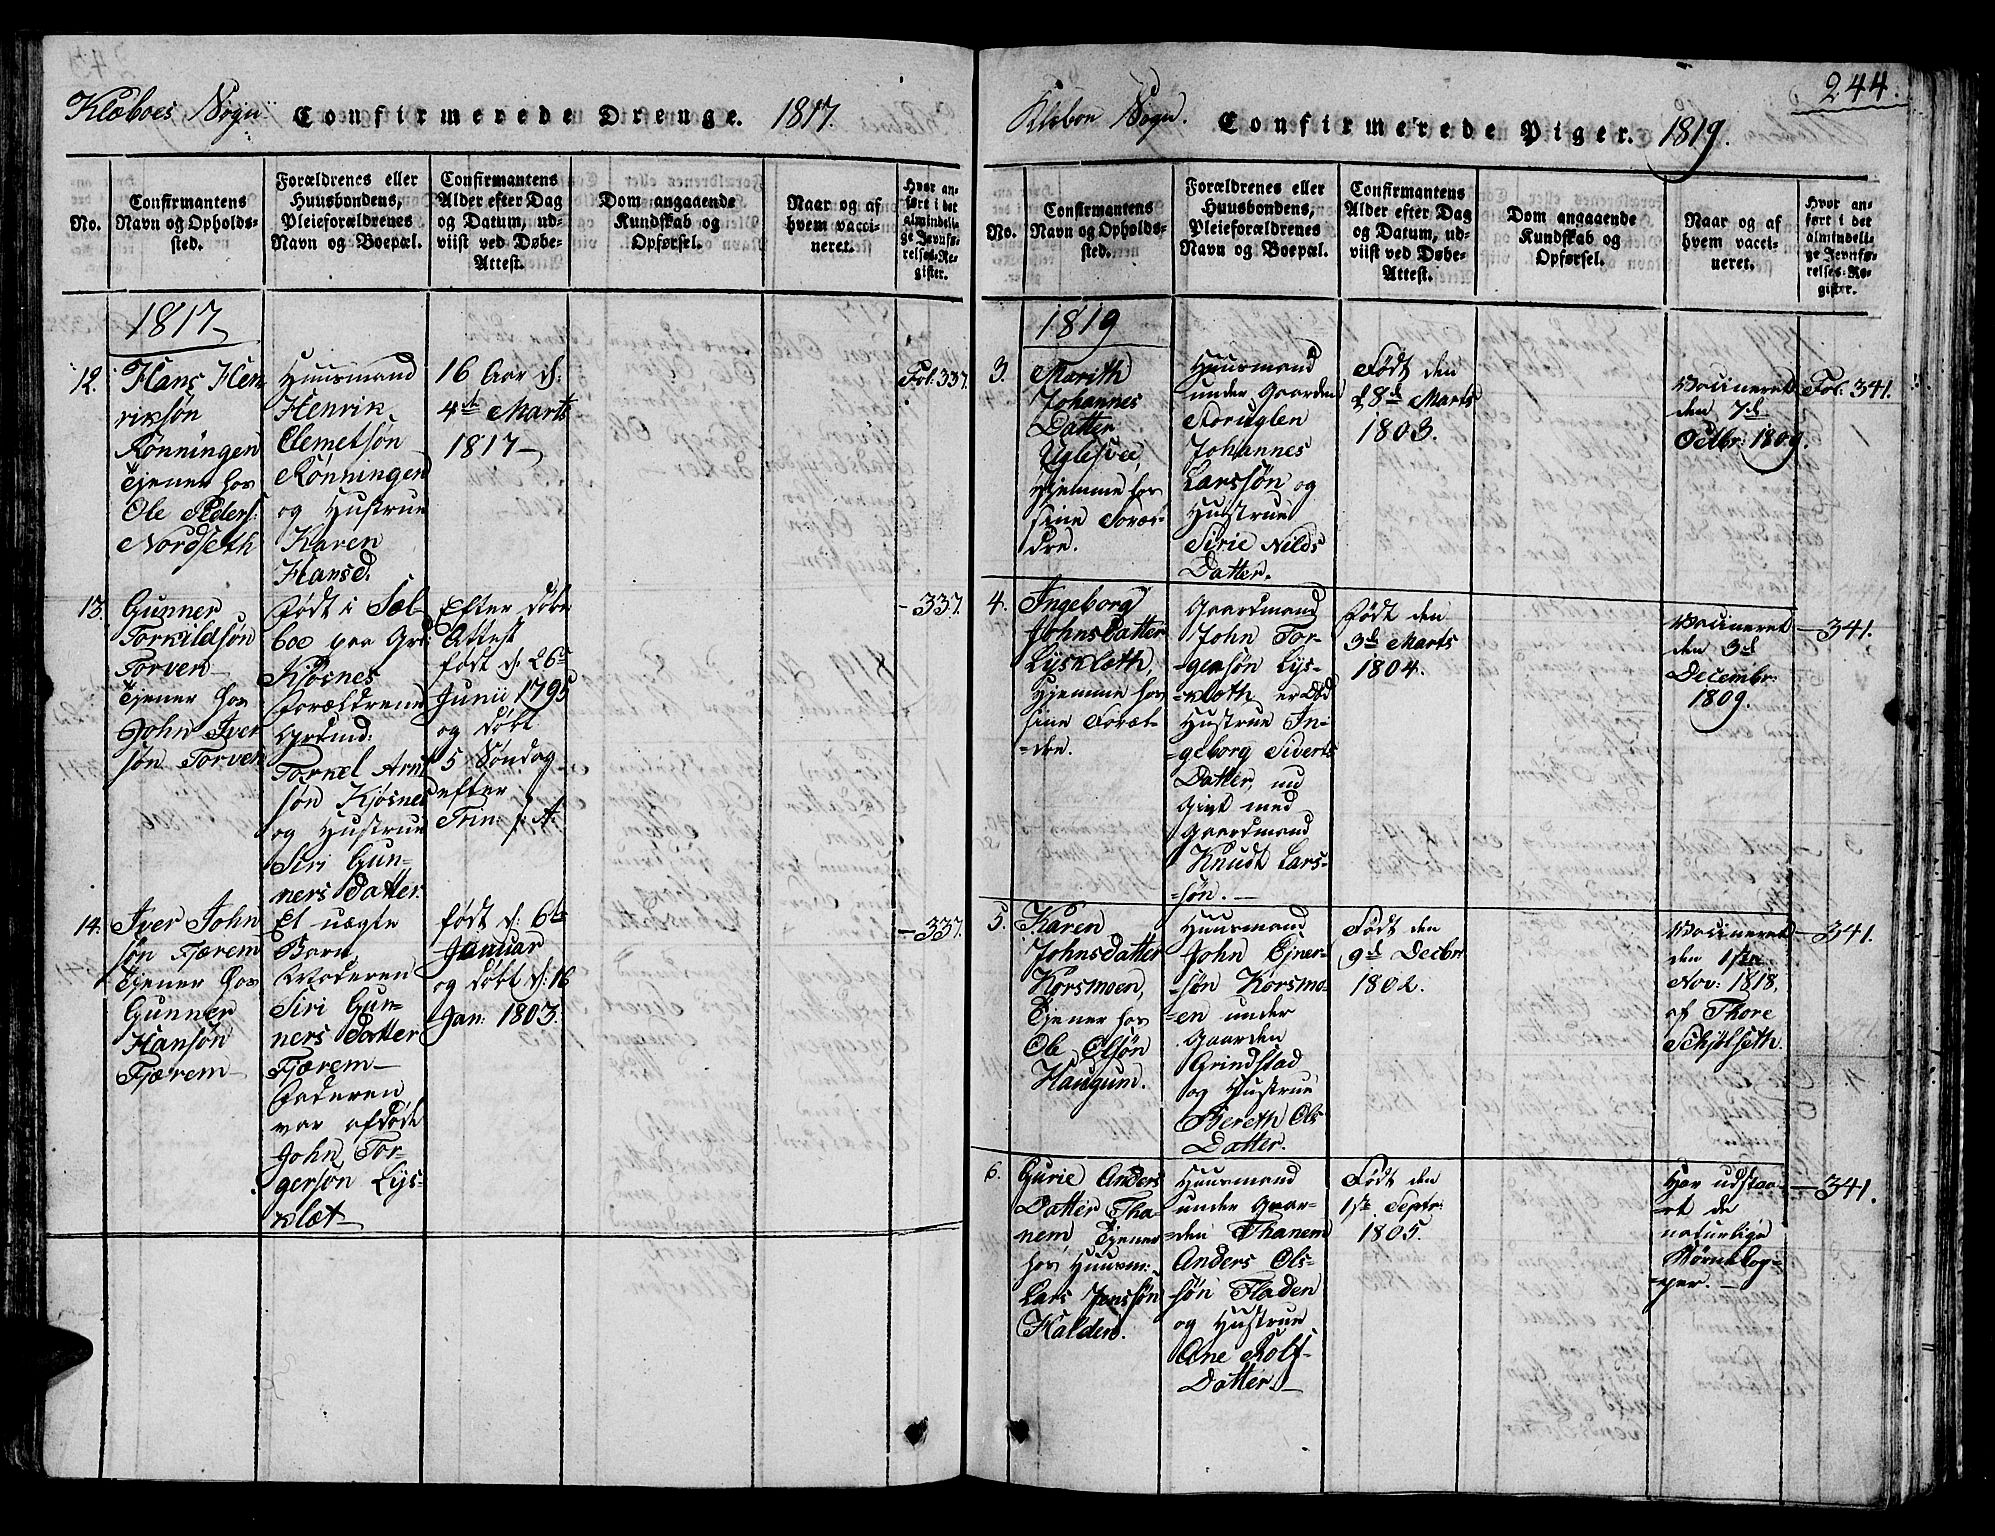 Klæboes Sogn Confirmerede Drenge. 1817.
No.
Confirmantens
Navn og Opholds-
sted.
Forældrenes eller
Huusbondens,
Pleieforældrenes
Navn og Boepæl.
Confirmantens
Alder efter Dag
og Datum, ud-
viist ved Døbe-
Attest.
Dom angaaende
Kundskab og
Opførsel.
Naar og af
hvem vacci-
neret.
Hvor an-
ført i det
almindeli-
ge Jevnfø-
relses-Re-
gister.
1817
12.
Hans Hen
riksøn
Rønningen
Tjener hos
Ole Peders:
Nordseth
Huusmand
Henrik
Clemetsøn
Rønningen
og Hustrue
Karen
Hansd.
16 Aar d:
4de Marts
1817
Fol: 337.
13.
Gunner
Torkildsøn
Torven
Tjener hos
John Iver
søn Torven
Født i Sæl-
boe paa Grd:
Kjøsnes
Forældrene
Grdmd:
Torkel Arnt
søn Kjøsnes
og Hustrue
Siri Gun-
ners Datter.
Efter Døbe
Attest
født d: 26de
Junii 1795
og døbt
5 Søndag
efter
Trin: s: A:
- 337.
14.
Iver John
søn Fjærem
Tjener hos
Gunner
Hansøn
Fjærem
Et uægte
Barn,
Moderen
Siri Gun-
ners Datter
Fjærem
Faderen
var afdøde
John Tor-
gersøn Lys-
klæt
født d: 6te
Januar
og døbt d: 16
Jan: 1803.
- 337.
244.
Klæboe Sogn. Confirmerede Piger. 1819.
No.
Confirmantens
Navn og Opholds-
sted.
Forældrenes eller
Huusbondens,
Pleieforældrenes
Navn og Boepæl.
Confirmantens
Alder efter Dag
og Datum, ud-
viist ved Døbe-
Attest.
Dom angaaende
Kundskab og
Opførsel.
Naar og af
hvem vacci-
neret.
Hvor an-
ført i det
almindeli-
ge Jevnfø-
relses-Re-
gister.
1819
3.
Marith
Johannes
Datter
Uglesvee,
hjemme hos
sine Foræl-
dre.
Huusmand
under Gaarden
Johannes
Larssøn og
Hustrue
Sirie Nilds
Datter.
Født den
8de Marts
1803.
Vacineret
den 7de
Octbr: 1809.
Fol: 341.
4.
Ingeborg
JohnsDatter
Lysklæth,
hjemme hos
sine Foræl-
=dre.
Gaardmand
John Tor-
=gersøn Lys-
=klæth er død
Hustrue In-
=geborg Siverts
Datter, nu
givt med
Gaardmand
Knudt Lars-
=søn. -
Født den
3de Marts
1804.
Vacineret
den 3de
Decembr:
1809.
- 341.
5.
Karen
Johnsdatter
Korsmoen,
Tjener hos
Ole Olsøn
Haugum.
Huusmand
John Ejner-
=søn Korsmo-
=en under
Gaarden
Grindstad
og Hustrue
Bereth Ols
Datter.
Født den
9de Decbr
1802.
Vacineret
den 1ste
Nov: 1818,
af Thore
Schjølseth.
- 341.
6.
Gurie Anders
Datter Tha-
nem, Tjener
hos Huusm:
Lars Jenssøn
Halden.
Huusmand
under Gaar-
=den Thanem
Anders Ols-
søn Fladen
og Hustrue
Ane Rolf-
Datter. -
Født den
1ste Septr:
1805.
Har udstaa-
=et de
naturlige
Børnekop-
=per. -
- 341.